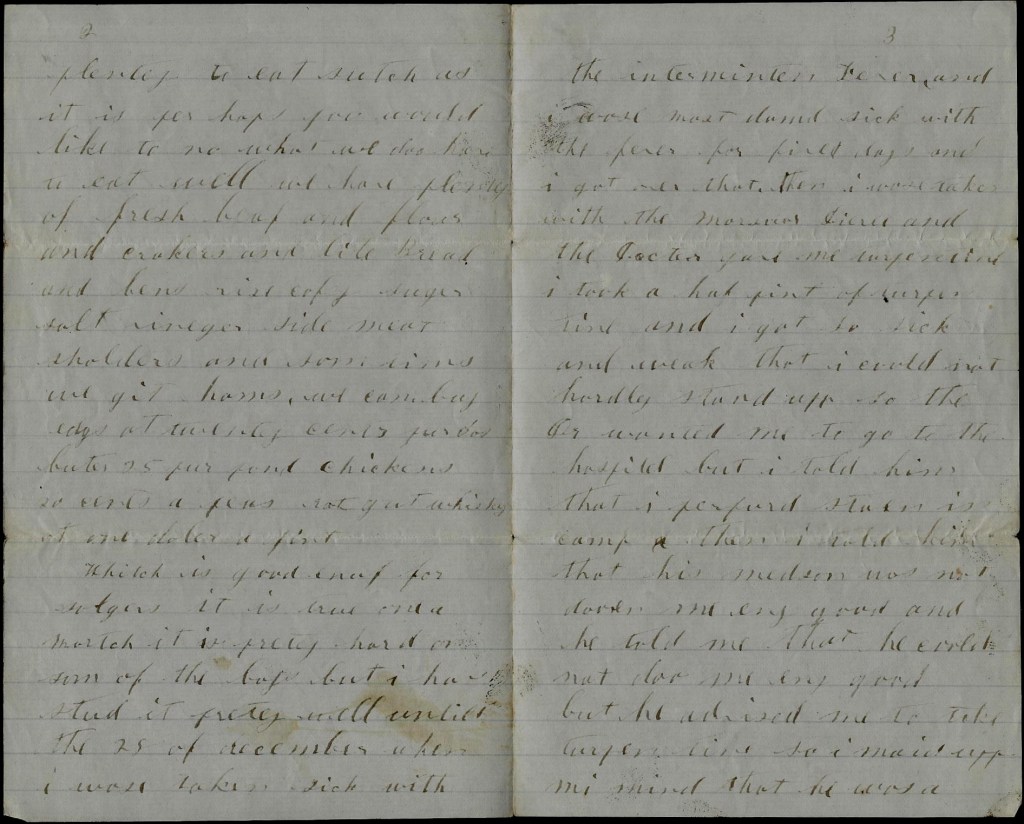 2
plenty to eat sutch as
it is per haps you would
like to no what we doo have
to eat well we have plenty
of fresh beaf and flour
and crakers and lite Bread
and bens rise cofy suger
salt vineger side meat
sholders and som times
we git hams, we can buy
eags at twenty cents per dos
buter 25 pur pond chickens
cents a peas rot gut whiskey
at one doler a pint
Whitch is good enuf for
solgers it is true on a
martch it is prety hard on
som of the boys but i have
stud it prety well untill
the 25 of december when
i wose taken sick with
3
the interminten Fever, and
i wose most damd sick with
the fever for days and
i got over that, then i wose taken
with the and
the Docter gave me turpentine
i took a haf pint of turpen
tine and i got so sick
and weak that i could not
hardly stand upp so the
Dr wanted me to go to the
hospitel but i told him
that i perfurd staen in
camp & then i told him
that his medson was not
dooen me eny good and
he told me that he could
not doo me eny good
but he advised me to take
turpen tine so i maid upp
mi mind that he wos a